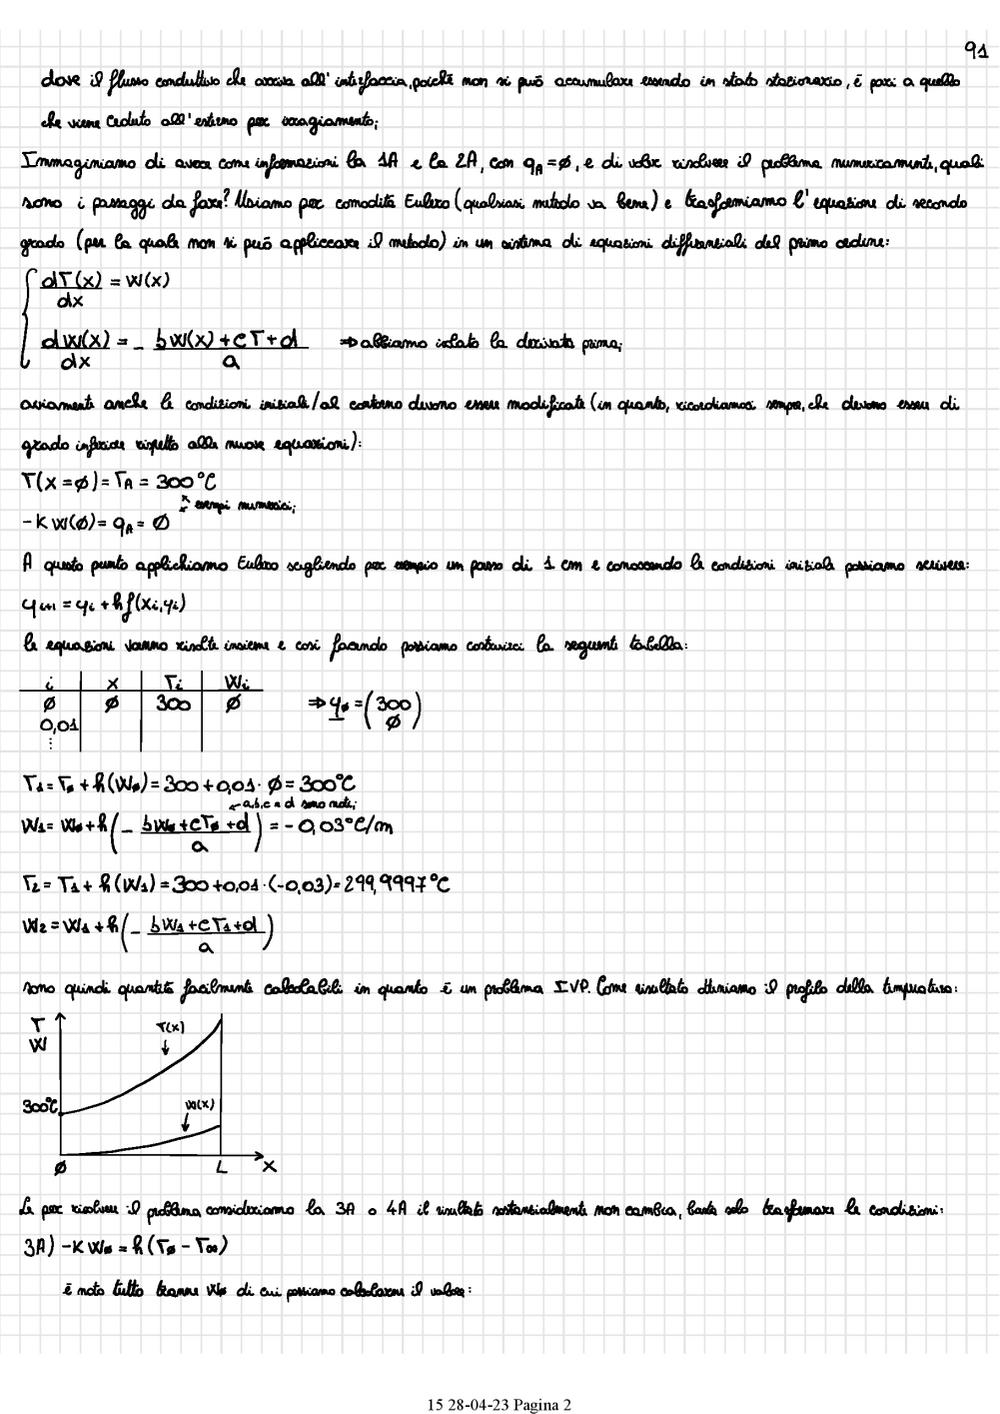 91
dove il flusso conduttivo che arriva all'interfaccia, poiché non si può accumulare essendo in stato stazionario, è pari a quello
che viene ceduto all'esterno per irragiamento;
Immaginiamo di avere come informazioni la 1A e la 2A, con qA = ∅, e di voler risolvere il problema numericamente, quali
sono i passaggi da fare? Usiamo per comodità Eulero (qualsiasi metodo va bene) e trasformiamo l'equazione di secondo
grado (per la quale non si può appliccare il metodo) in un sistema di equazioni differenziali del primo ordine:
{ dT(x)/dx = W(x)
dW(x)/dx = - (bW(x)+cT+d)/a ⇒ abbiamo isolato la derivata prima;
ovviamente anche le condizioni iniziali/al contorno devono essere modificate (in quanto, ricordiamoci sempre, che devono essere di
grado inferiore rispetto alle nuove equazioni):
T(x=∅) = TA = 300°C
esempi numerici;
-K W(∅) = qA = ∅
A questo punto applichiamo Eulero scegliendo per esempio un passo di 1 cm e conoscendo le condizioni iniziali possiamo scrivere:
yi+1 = yi + h f(xi, yi)
le equazioni vanno risolte insieme e così facendo possiamo costruirci la seguente tabella:
i | x | Ti | Wi
∅ | ∅ | 300 | ∅ ⇒ y∅ = (300 ∅)
0,01
⋮
T1 = T∅ + h(W∅) = 300 + 0,01 · ∅ = 300°C
← a,b,c e d sono note;
W1 = W∅ + h(- (bW∅+cT∅+d)/a) = -0,03°C/m
T2 = T1 + h(W1) = 300 + 0,01 · (-0,03) = 299,9997°C
W2 = W1 + h(- (bW1+cT1+d)/a)
sono quindi quantità facilmente calcolabili in quanto è un problema IVP. Come risultato otteniamo il profilo della temperatura:
T
W
T(x)
300°C
W(x)
∅ L x
Se per risolvere il problema consideriamo la 3A o 4A il risultato sostanzialmente non cambia, basta solo trasformare le condizioni:
3A) -K W∅ = h(T∅ - T∞)
è noto tutto tranne W∅ di cui possiamo calcolarne il valore:
15 28-04-23 Pagina 2